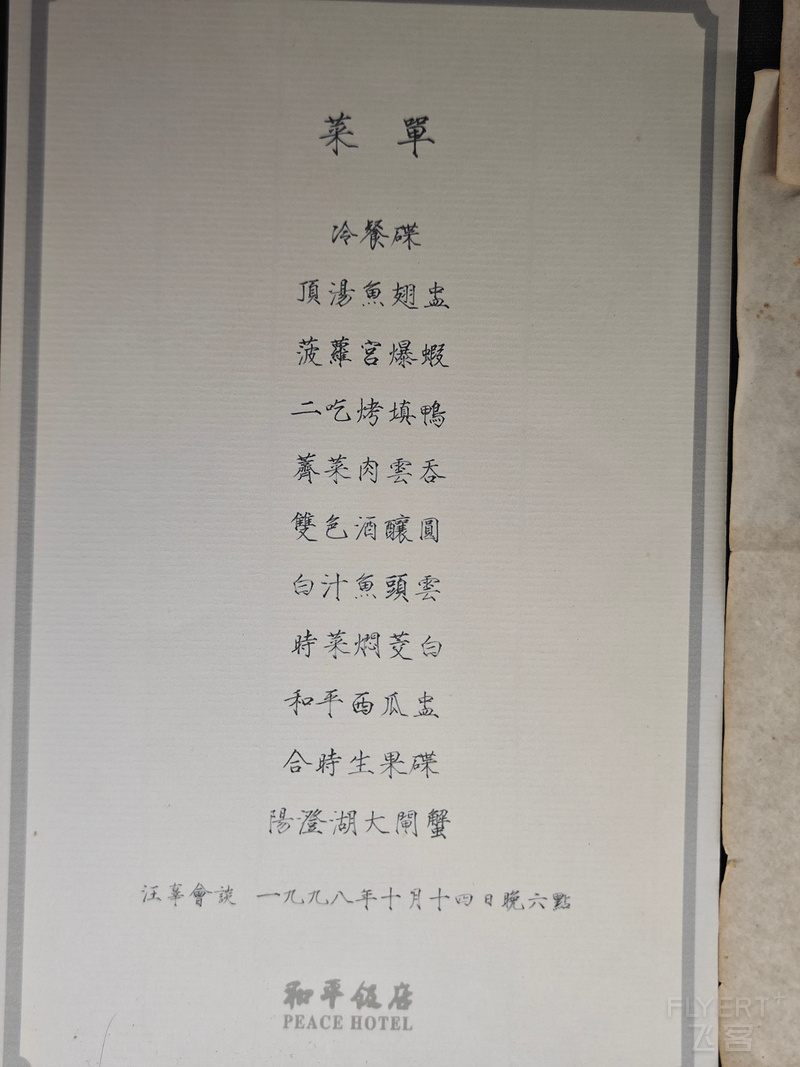 菜單
冷餐碟
頂湯魚翅盅
菠蘿宮爆蝦
二吃烤填鴨
薺菜肉雲吞
雙色酒釀圓
白汁魚頭雲
時菜燜茭白
和平西瓜盅
合時生果碟
陽澄湖大閘蟹
汪辜會談 一九九八年十月十四日晚六點
和平飯店
PEACE HOTEL
FLYERT+
飞客